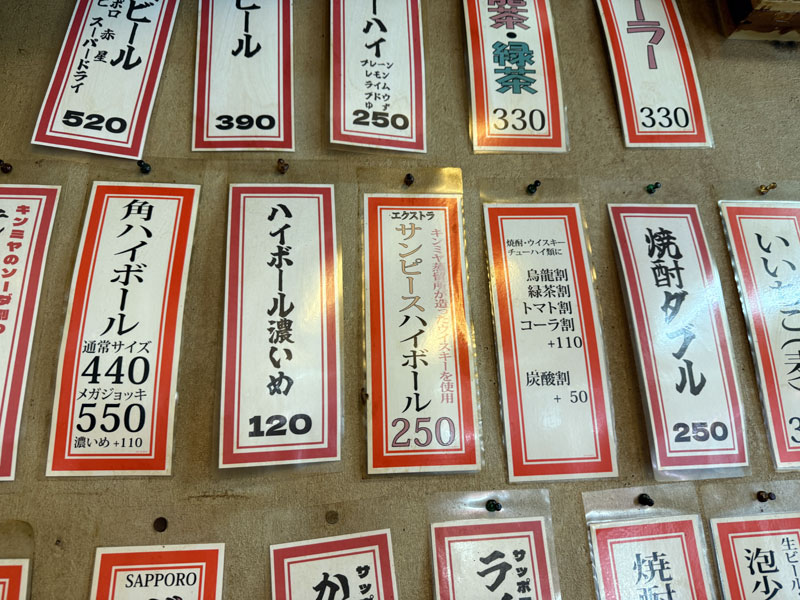 ビール
赤星
スーパードライ
520
ビール
390
ハイ
プレーン
レモン
ライム
250
茶・緑茶
330
ーラー
330
キンミヤのソーダ割り
角ハイボール
通常サイズ
440
メガジョッキ
550
濃いめ +110
ハイボール濃いめ
120
エクストラ
サンピースハイボール
250
焼酎・ウイスキー
チューハイ類に
烏龍割
緑茶割
トマト割
コーラ割
+110
炭酸割
+ 50
焼酎ダブル
250
いい
(麦)
SAPPORO
サッポ
か
サッポロ
ラ
焼酎
生ビール
泡少